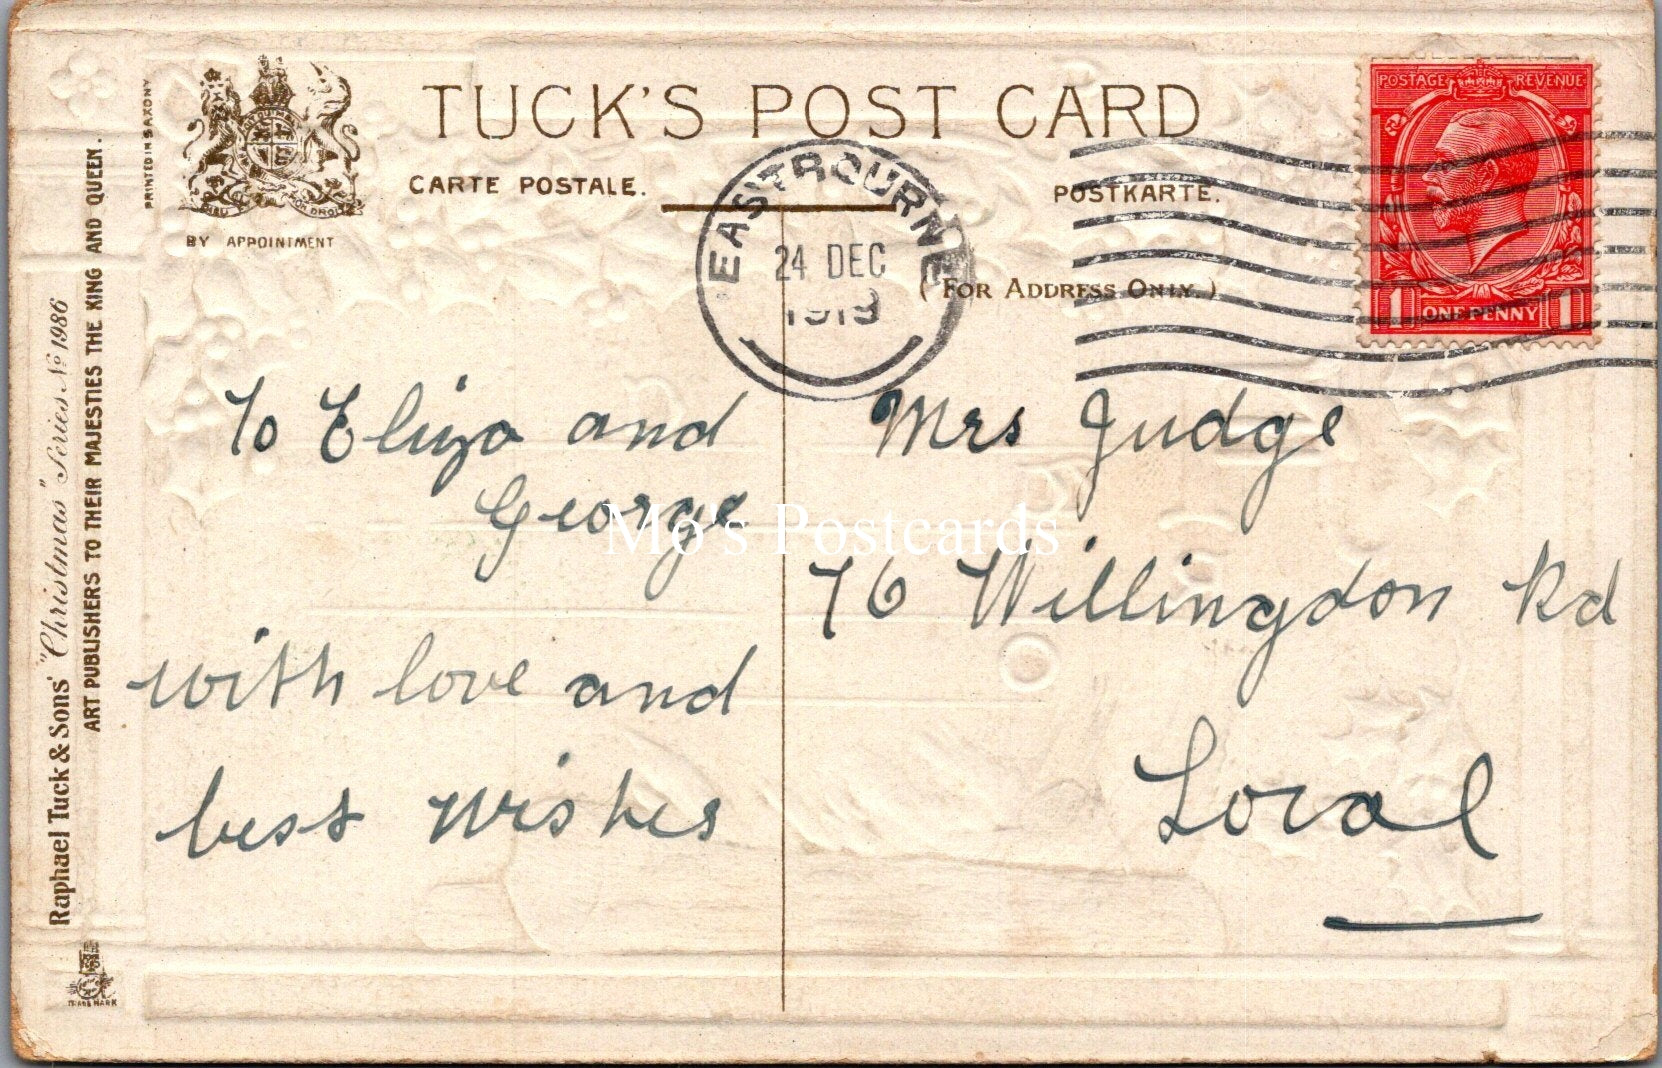 TUCK'S POST CARD
CARTE POSTALE.
POSTKARTE.
(FOR ADDRESS ONLY.)
BY APPOINTMENT
PRINTED IN SAXONY
Raphael Tuck & Sons' "Christmas" Series No 1986
ART PUBLISHERS TO THEIR MAJESTIES THE KING AND QUEEN.
TRADE MARK
EASTBOURNE
24 DEC
1919
POSTAGE REVENUE
1 ONE PENNY 1
To Eliza and
George
with love and
best wishes
Mrs Judge
76 Willingdon Rd
Local
Mo's Postcards